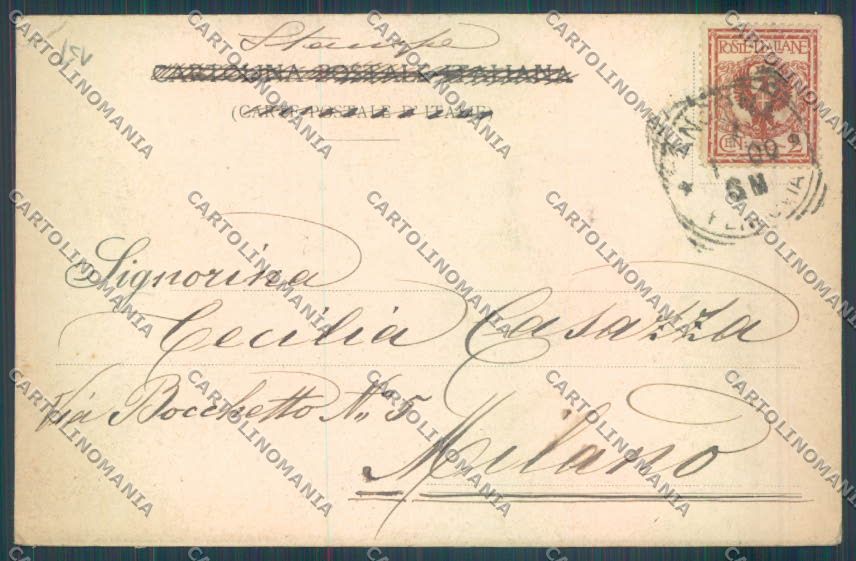 Stampe
CARTOLINA POSTALE ITALIANA
(CARTE POSTALE D'ITALIE)
POSTE ITALIANE
CEN. 2
00
6 M
FERROVIA
Signorina
Cecilia Casazza
Via Bocchetto No 5
Milano
CARTOLINOMANIA